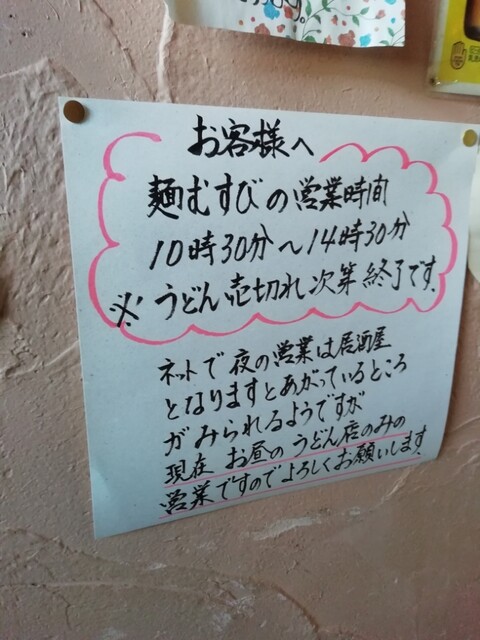 お客様へ
麺むすびの営業時間
10時30分〜14時30分
※うどん売切れ次第終了です。
ネットで夜の営業は居酒屋
となりますとあがっているところ
がみられるようですが
現在 お昼のうどん店のみの
営業ですのでよろしくお願いします。